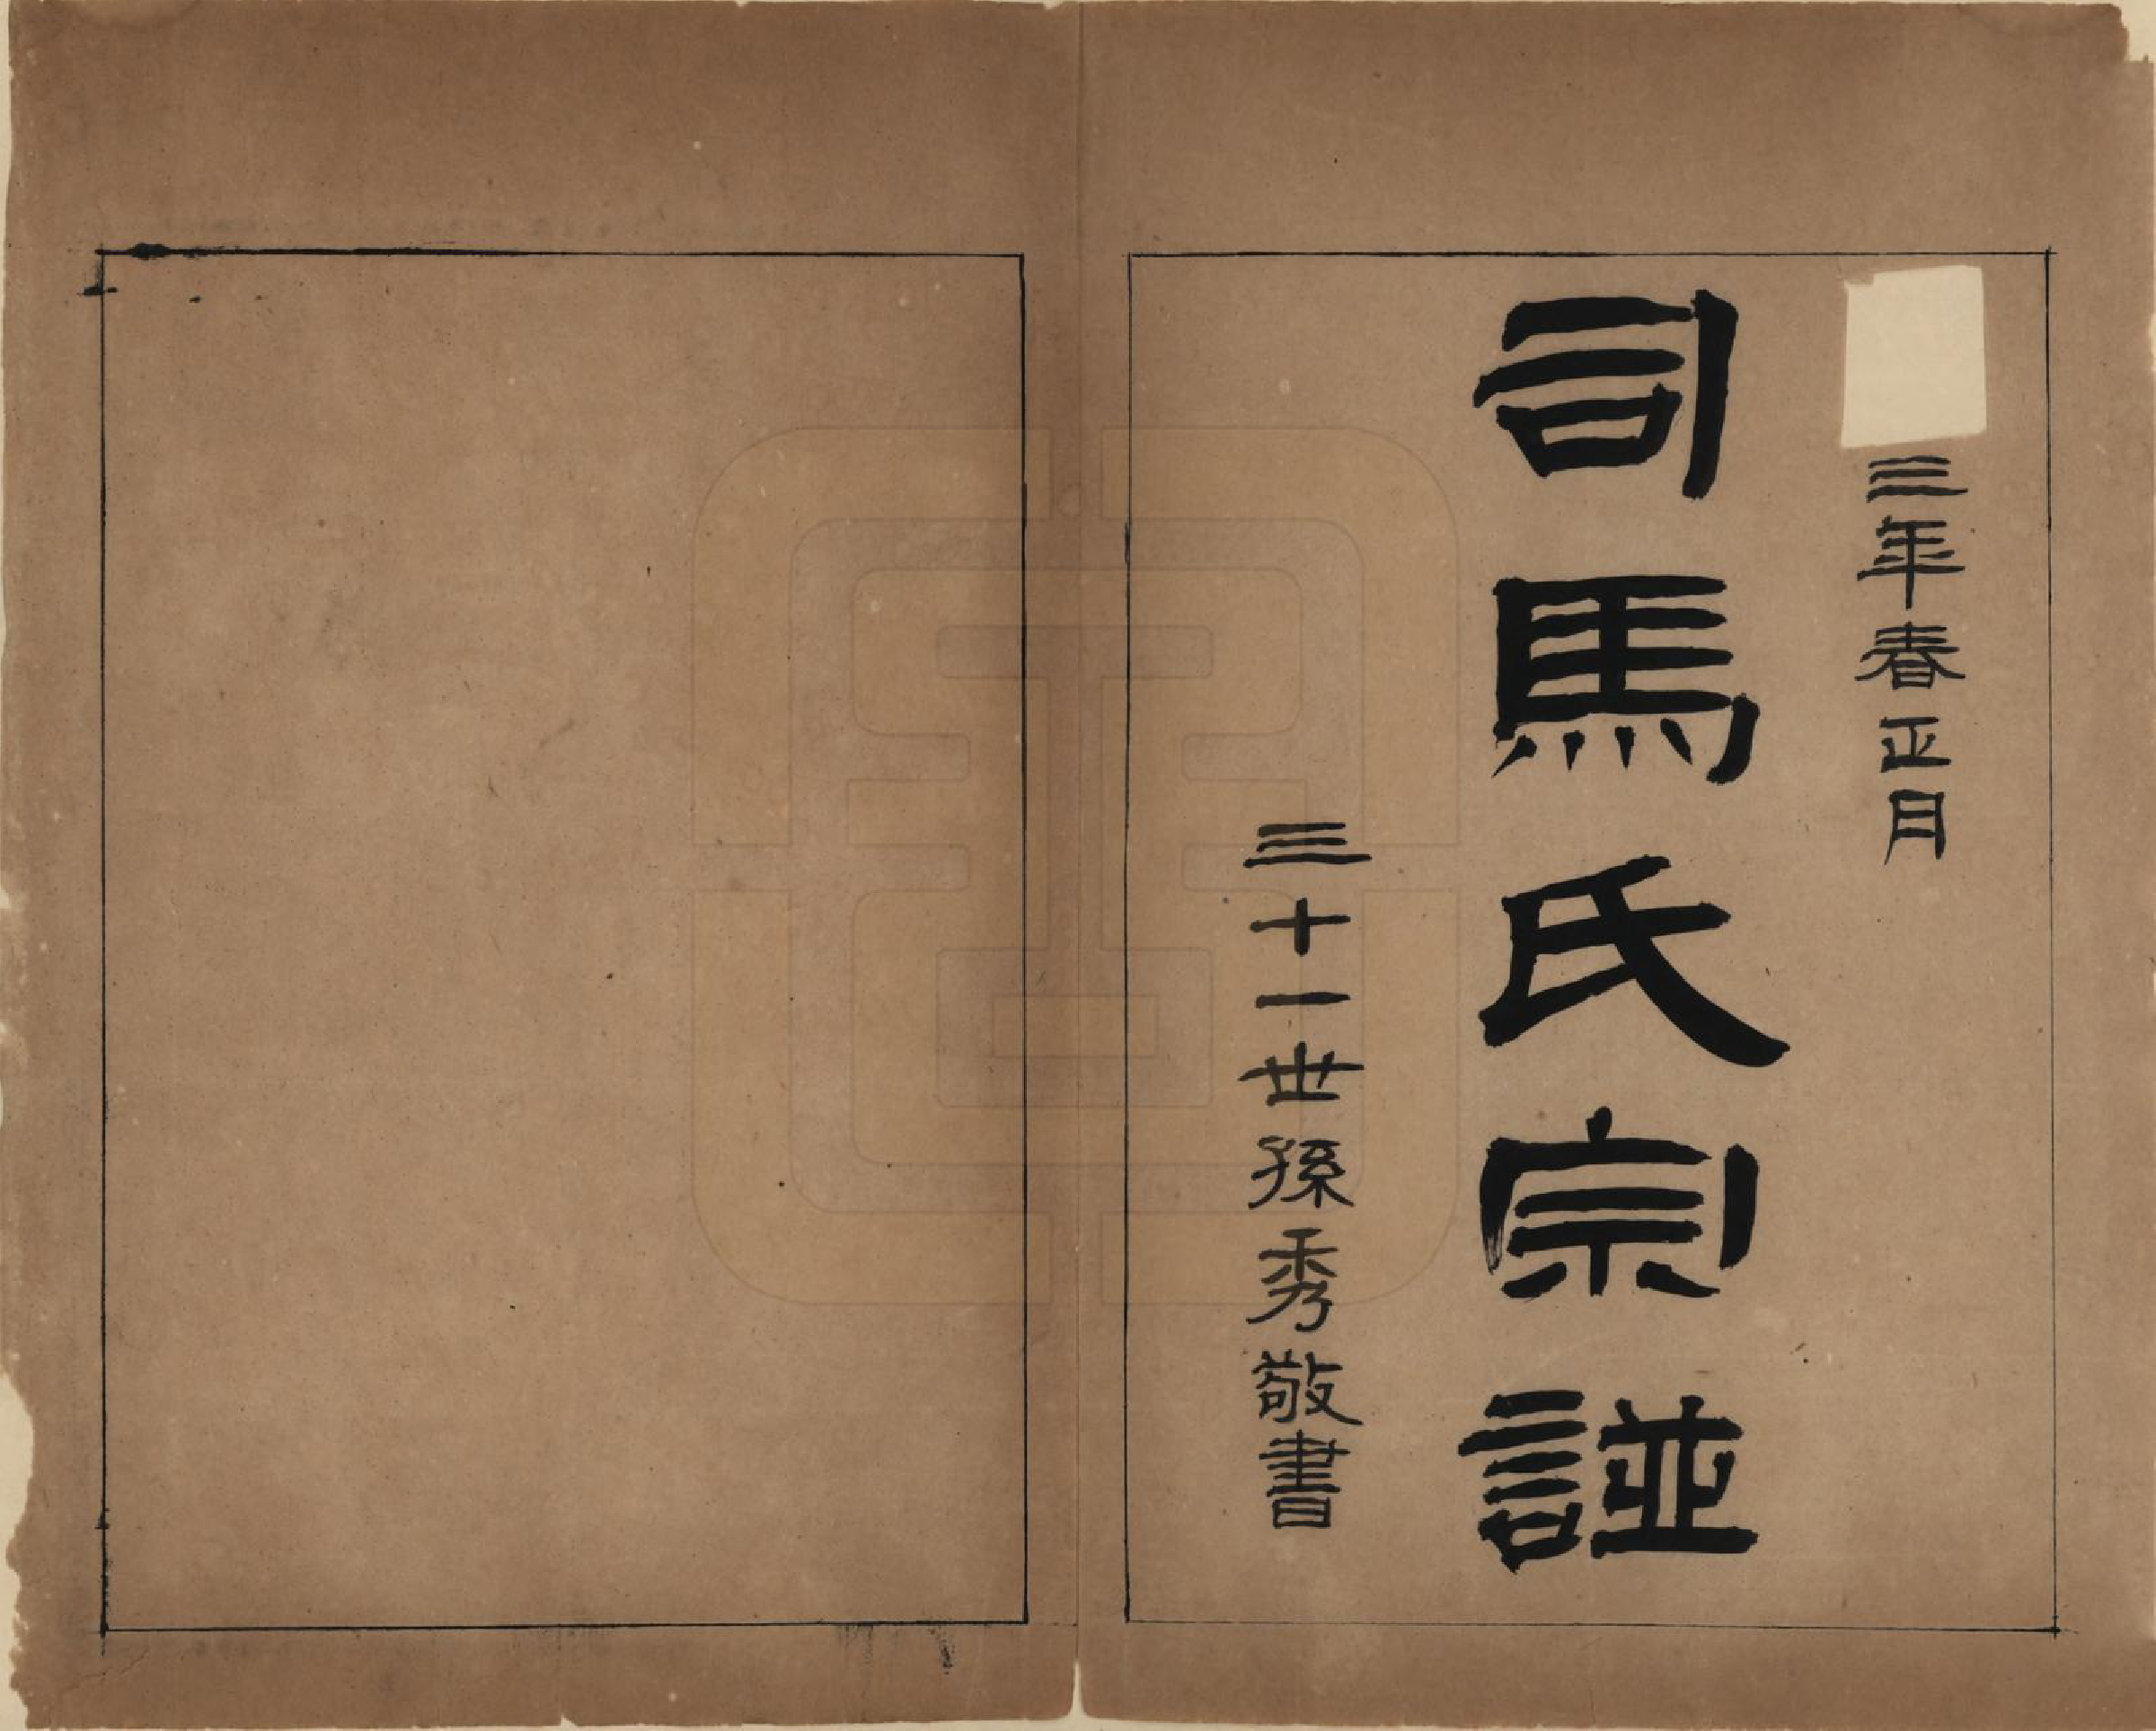 三年春正月
司馬氏宗譜
三十一世孫秀敬書